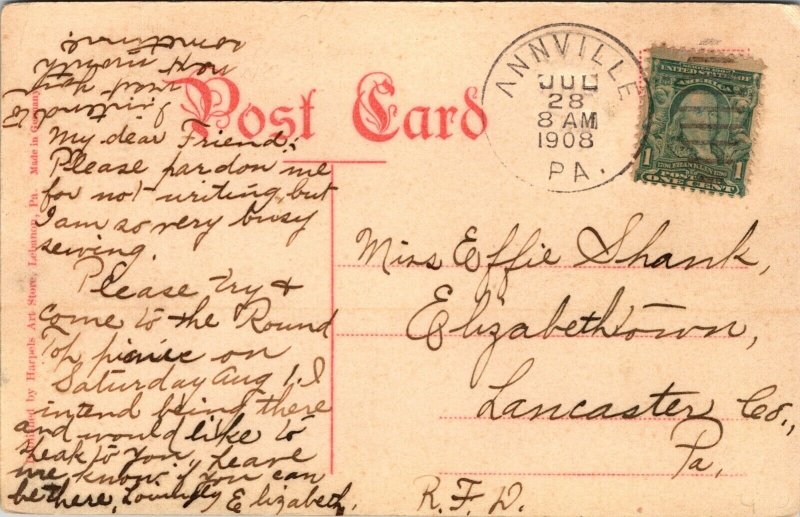 Post Card
ANNVILLE
JUL
28
8 AM
1908
PA.
UNITED STATES OF
AMERICA
FRANKLIN
1 1
POSTAGE
ONE CENT
Made in Germany
Published by Harpels Art Store, Lebanon, Pa.
My dear Friend:
Please pardon me
for not writing, but
I am so very busy
sewing.
Please try &
come to the Round
Top picnic on
Saturday Aug 1. I
intend being there
and would like to
speak to you,
me know if you can
be there, Lovingly Elizabeth.
I intend to
next
month
sometime
Miss Effie Shank,
Elizabethtown,
Lancaster Co.,
Pa,
R.F.D.